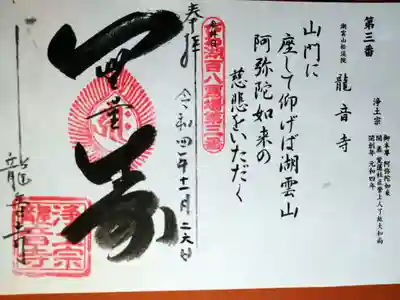 第三番
湖雲山松涛院
龍音寺
浄土宗
御本尊 阿弥陀如来
開創年 元和四年
山門に
座して仰げば湖雲山
阿弥陀如来の
慈悲をいただく
奉拝
令和四年十一月二六日
無量寿
龍音寺
浄土宗
龍音寺